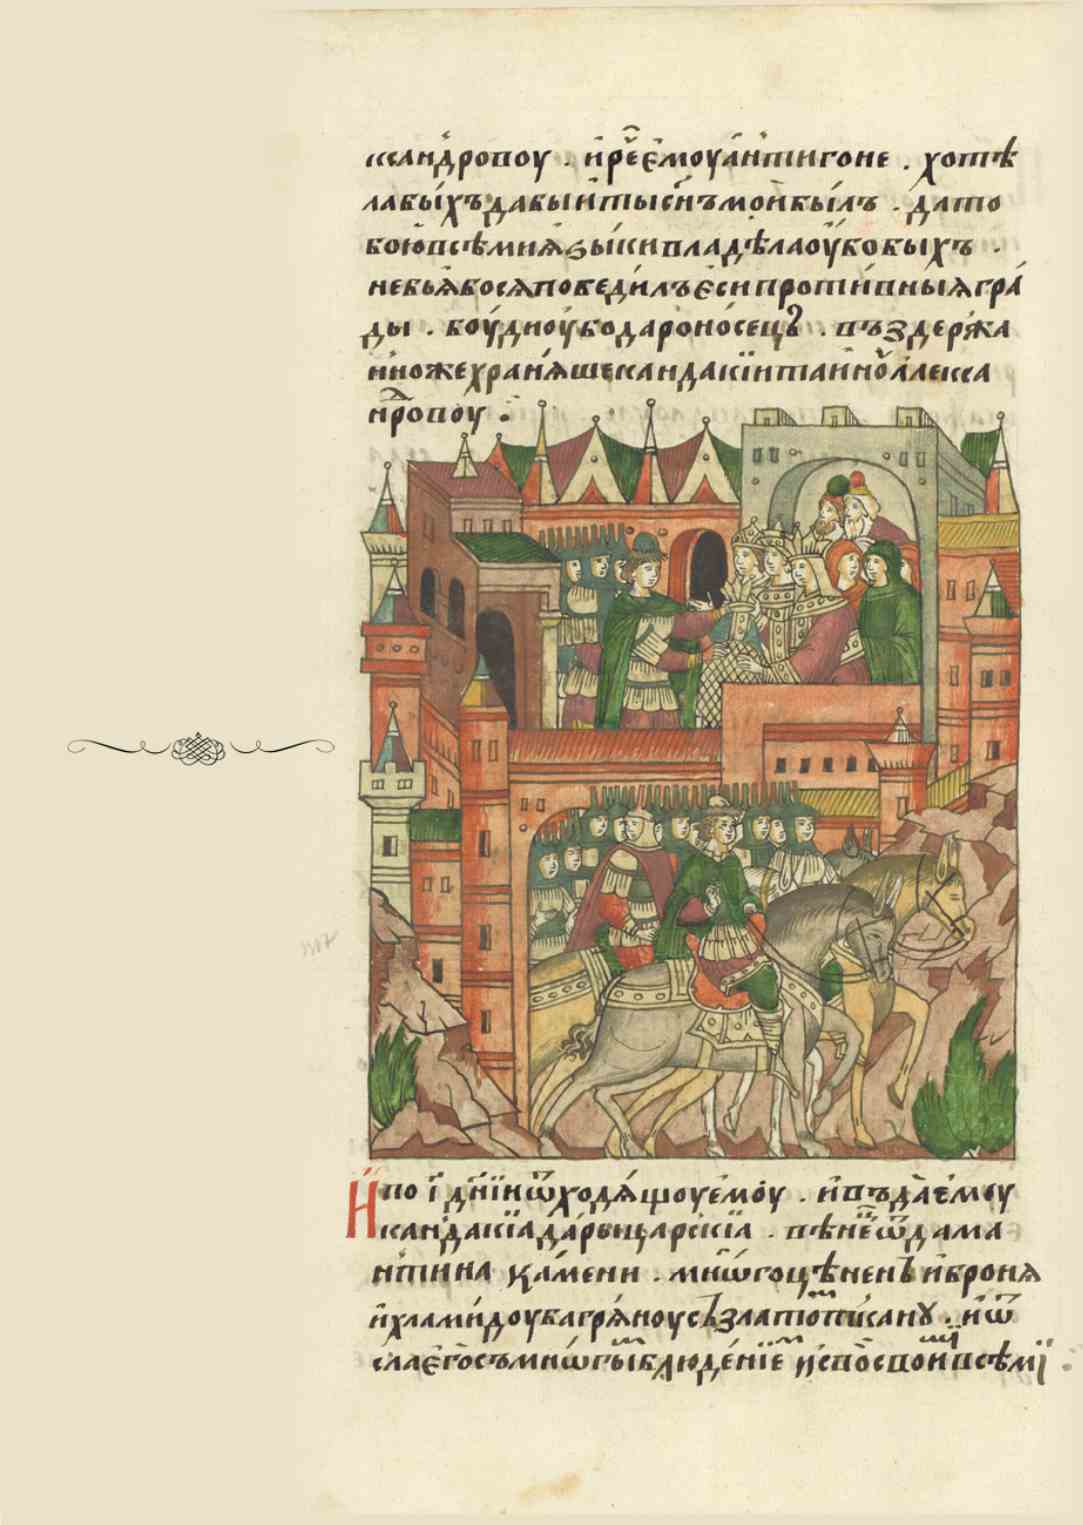 ѯандровоу . и҆ рече҃ є҆моу а҆нтигоне . хотѣ
ла бы́хъ да бы и҆ ты сн҃ъ мои бы́лъ . да то
бою всѣми ꙗ҆зы́ки владѣла оу҆бо бы́хъ .
не бѡꙗ҆ бо сѧ победи́лъ є҆си проти́вныѧ гра́
ды . боу́дноу бо дароно́сецꙋ . въздержа
нно же хранѧ́ше кандакїи таи́но а҆леѯа
нровоу .
И҆ по і҃ дн҃їи ѿходѧ́щоу є҆мо́у . и҆ въда́ є҆моу
кандакїа да́ры ца́рскїа . вѣне́ц ѿ дама
нтина ка́мени . мнѡ́гоцѣненъ и҆ бронѧ
и҆ хлами́доу багрѧ́ноу съ златом пи́сану . и҆ ѿ
сла є҆го съ мнѡ́гым блюде́нїем и҆ с вои свои́ми всѣмї